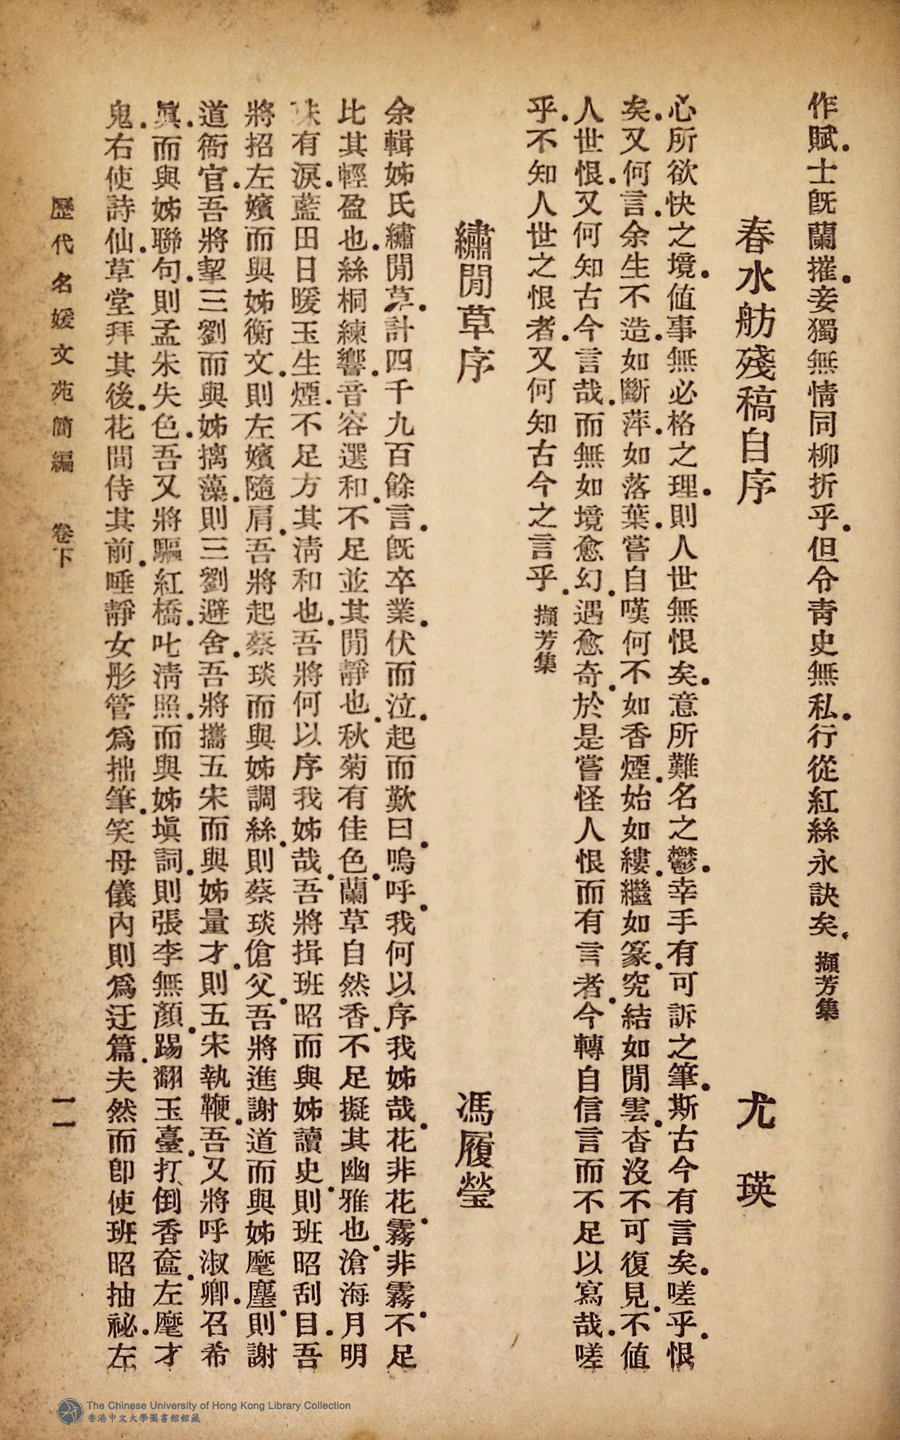 作賦士旣蘭摧妾獨無情同柳折乎但令靑史無私行從紅絲永訣矣 擷芳集
春水舫殘稿自序 尤瑛
心所欲快之境値事無必格之理則人世無恨矣意所難名之鬱幸手有可訴之筆斯古今有言矣嗟乎恨
矣又何言余生不造如斷萍如落葉嘗自嘆何不如香煙始如縷繼如篆究結如閒雲杳沒不可復見不値
人世恨又何知古今言哉而無如境愈幻遇愈奇於是嘗怪人恨而有言者今轉自信言而不足以寫哉嗟
乎不知人世之恨者又何知古今之言乎 擷芳集
繡閒草序 馮履瑩
余輯姊氏繡閒草計四千九百餘言旣卒業伏而泣起而歎曰嗚呼我何以序我姊哉花非花霧非霧不足
比其輕盈也絲桐練響音容選和不足並其閒靜也秋菊有佳色蘭草自然香不足擬其幽雅也滄海月明
珠有淚藍田日暖玉生煙不足方其淸和也吾將何以序我姊哉吾將揖班昭而與姊讀史則班昭刮目吾
將招左嬪而與姊衡文則左嬪隨肩吾將起蔡琰而與姊調絲則蔡琰傖父吾將進謝道而與姊麾麈則謝
道衙官吾將挈三劉而與姊摛藻則三劉避舍吾將攜五宋而與姊量才則五宋執鞭吾又將呼淑卿召希
眞而與姊聯句則孟朱失色吾又將驅紅橋叱淸照而與姊塡詞則張李無顏踢翻玉臺打倒香奩左麾才
鬼右使詩仙草堂拜其後花間侍其前唾靜女彤管爲拙筆笑母儀內則爲迂篇夫然而卽使班昭抽祕左
歷代名媛文苑簡編 卷下
一一
The Chinese University of Hong Kong Library Collection
香港中文大學圖書館館藏